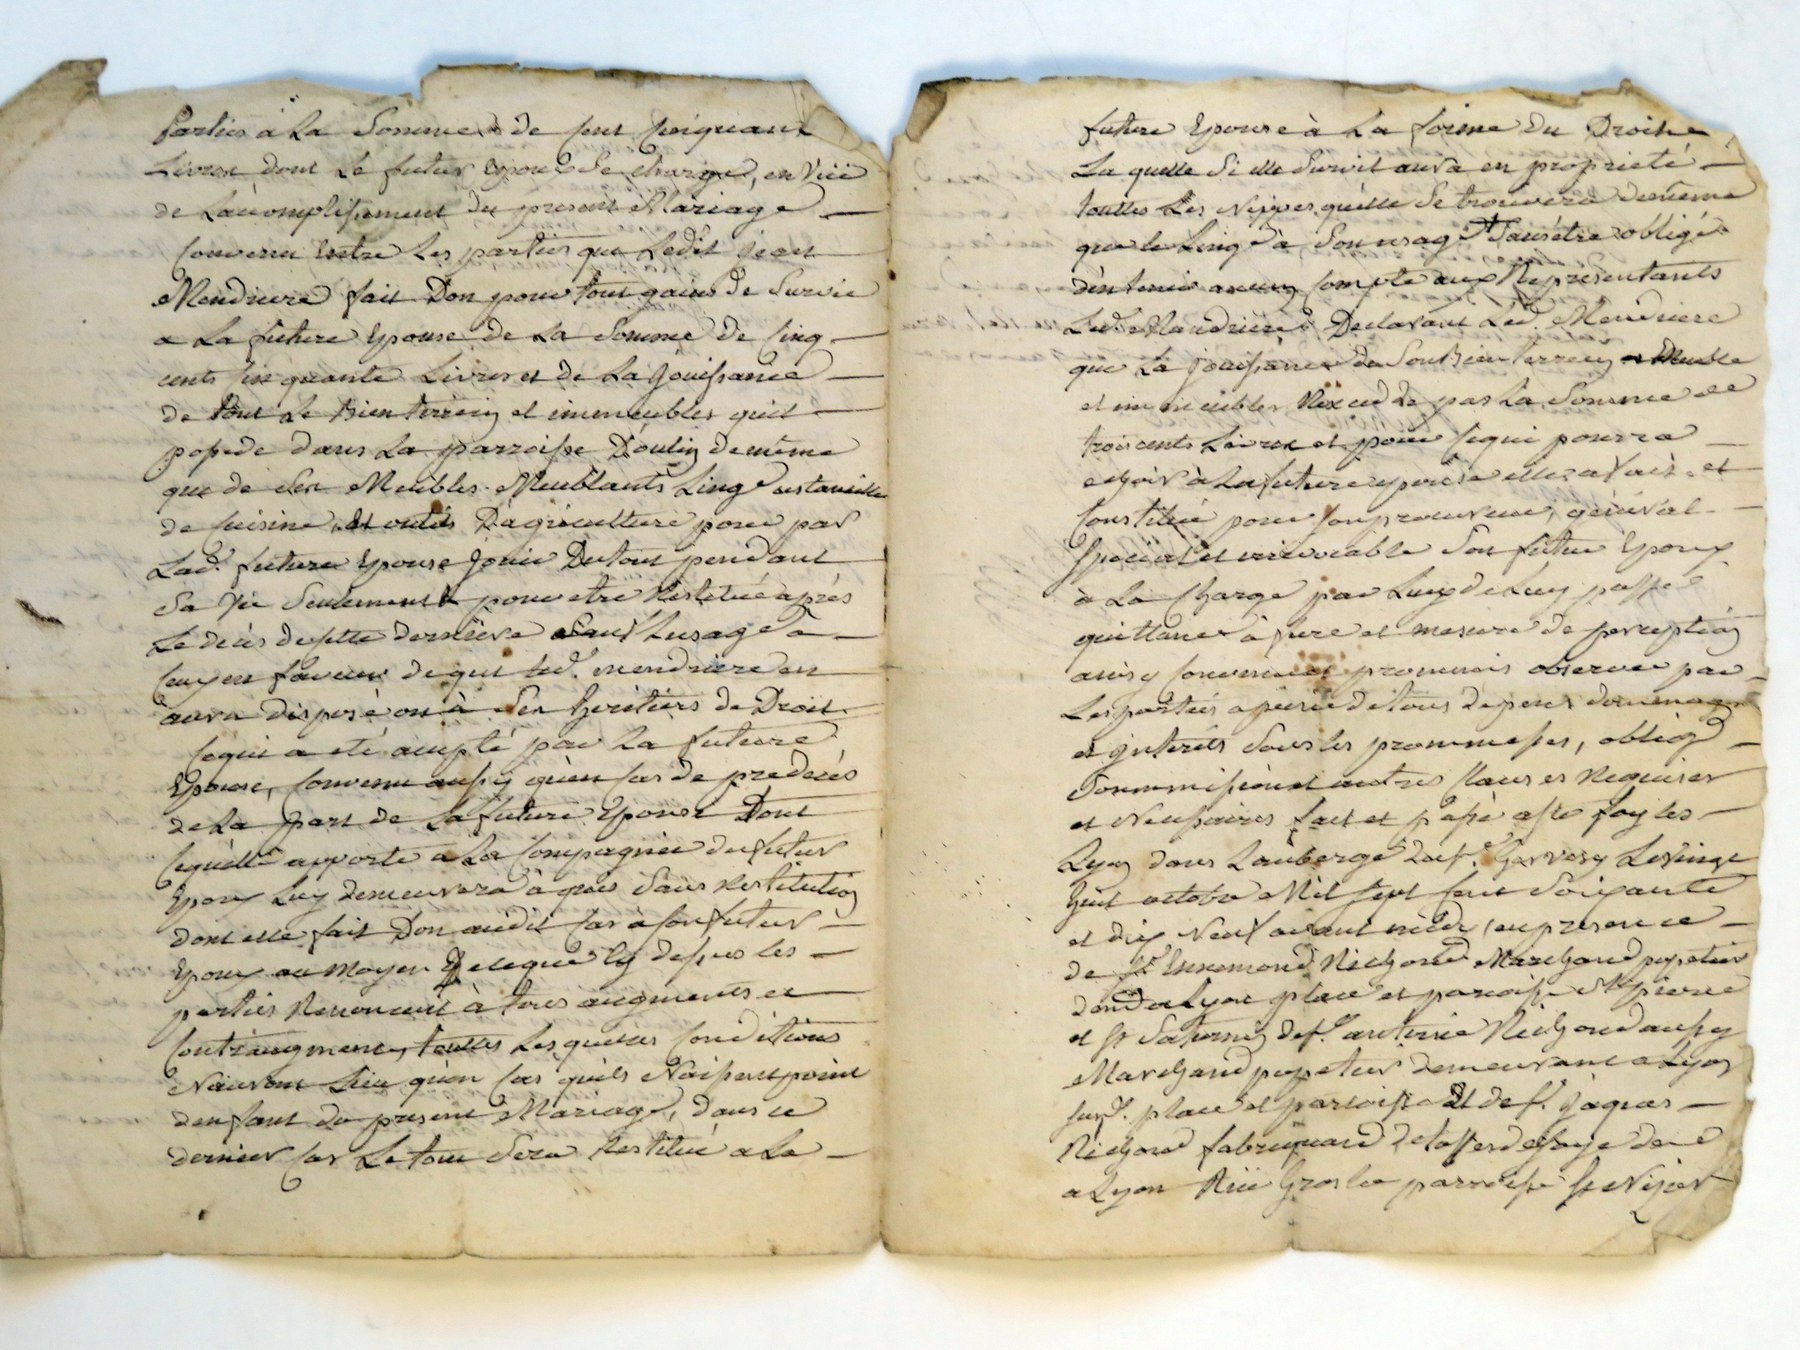 parties à La Somme de Cent Cinquante
Livres dont Le futur Epoux Se charge, en Vüe
de Lacomplissement du present Mariage
Convenu Entre Les parties que Ledit Jean
Mendriere fait Don pour tout gains de Survie
a La future Epouse de La Somme de Cinq
cents Cinquante Livres et de La Joüissance
de tout Le bien terrein et immeubles quil
possede dans La parroisse D'oulin de même
que de Ses Meubles Meublants Linge ustancille
de Cuisine, Et outils D'agriculture pour par
Lad. future Epouse Jouir Du tout pendant
Sa Vie Seulement & pour etre Restitué après
Le décès de cette derniere Sauf Lusage a
en faveur de qui led. mendriere en
aura disposé ou à Ses heritiers de Droit
Cequi a eté accepté par La future
Epouse, Convenu aussy qu'en Cas de predecés
de La part de La future Epouse Dont
Cequelle apporte a La Compagnie du futur
Epoux Luy demeurera Sans Restitution
dont elle fait Don audit Cas à Son futur
Epoux au moyen De ceque cy dessus les
parties Renoncent à tous augments et
Contraugment, toutes Lesquelles Conditions
N'auront Lieu qu'en Cas quils N'aissent point
d'enfant du present Mariage, dans ce
dernier Cas Le tout Sera Restitué a La
future Epouse à La forme du Droit
La quelle Si elle Survit aura en proprieté
touttes Les Nippes quelle Se trouvera de même
que le Linge à Son usage Sans être obligé
d'en tenir aucun Compte aux Representants
Led. Mandriere, Declarant Led. Mendriere
que La joüissance de Son bien terrein Meuble
et immeubles N'excede pas La Somme de
trois cents Livres et pour Cequi pourra
echoir à La future epouse elle a fait et
Constitué pour Son procureur, général
Special et irrevocable Son futur Epoux
à La Charge par Luy de Luy passé
quittance à fure et mesure de perception
ainsy Convenu et promis observer par
Les parties a peine de tous depens dommages
et interets Sous les prommesses, oblig.
Soummissions et autres Clauses Requises
et Necessaires fait et passé aste foy les
Lyon dans L'auberge Gervesy Le Vingt
huit octobre Mil Sept Cent Soixante
et dix Neuf avant midy en presence
de Sr Ennemond Richond Marchand papetier
dem. a Lyon place et paroisse St pierre
et Sr Saturnin def. antoine Richond aussy
Marchand papetier demeurant a Lyon
Susd. place et parroisse Et de f. Jaques
Richond fabriquand d'etoffes de Soye dem.
a Lyon Rüe Grolee parroisse St Nizier